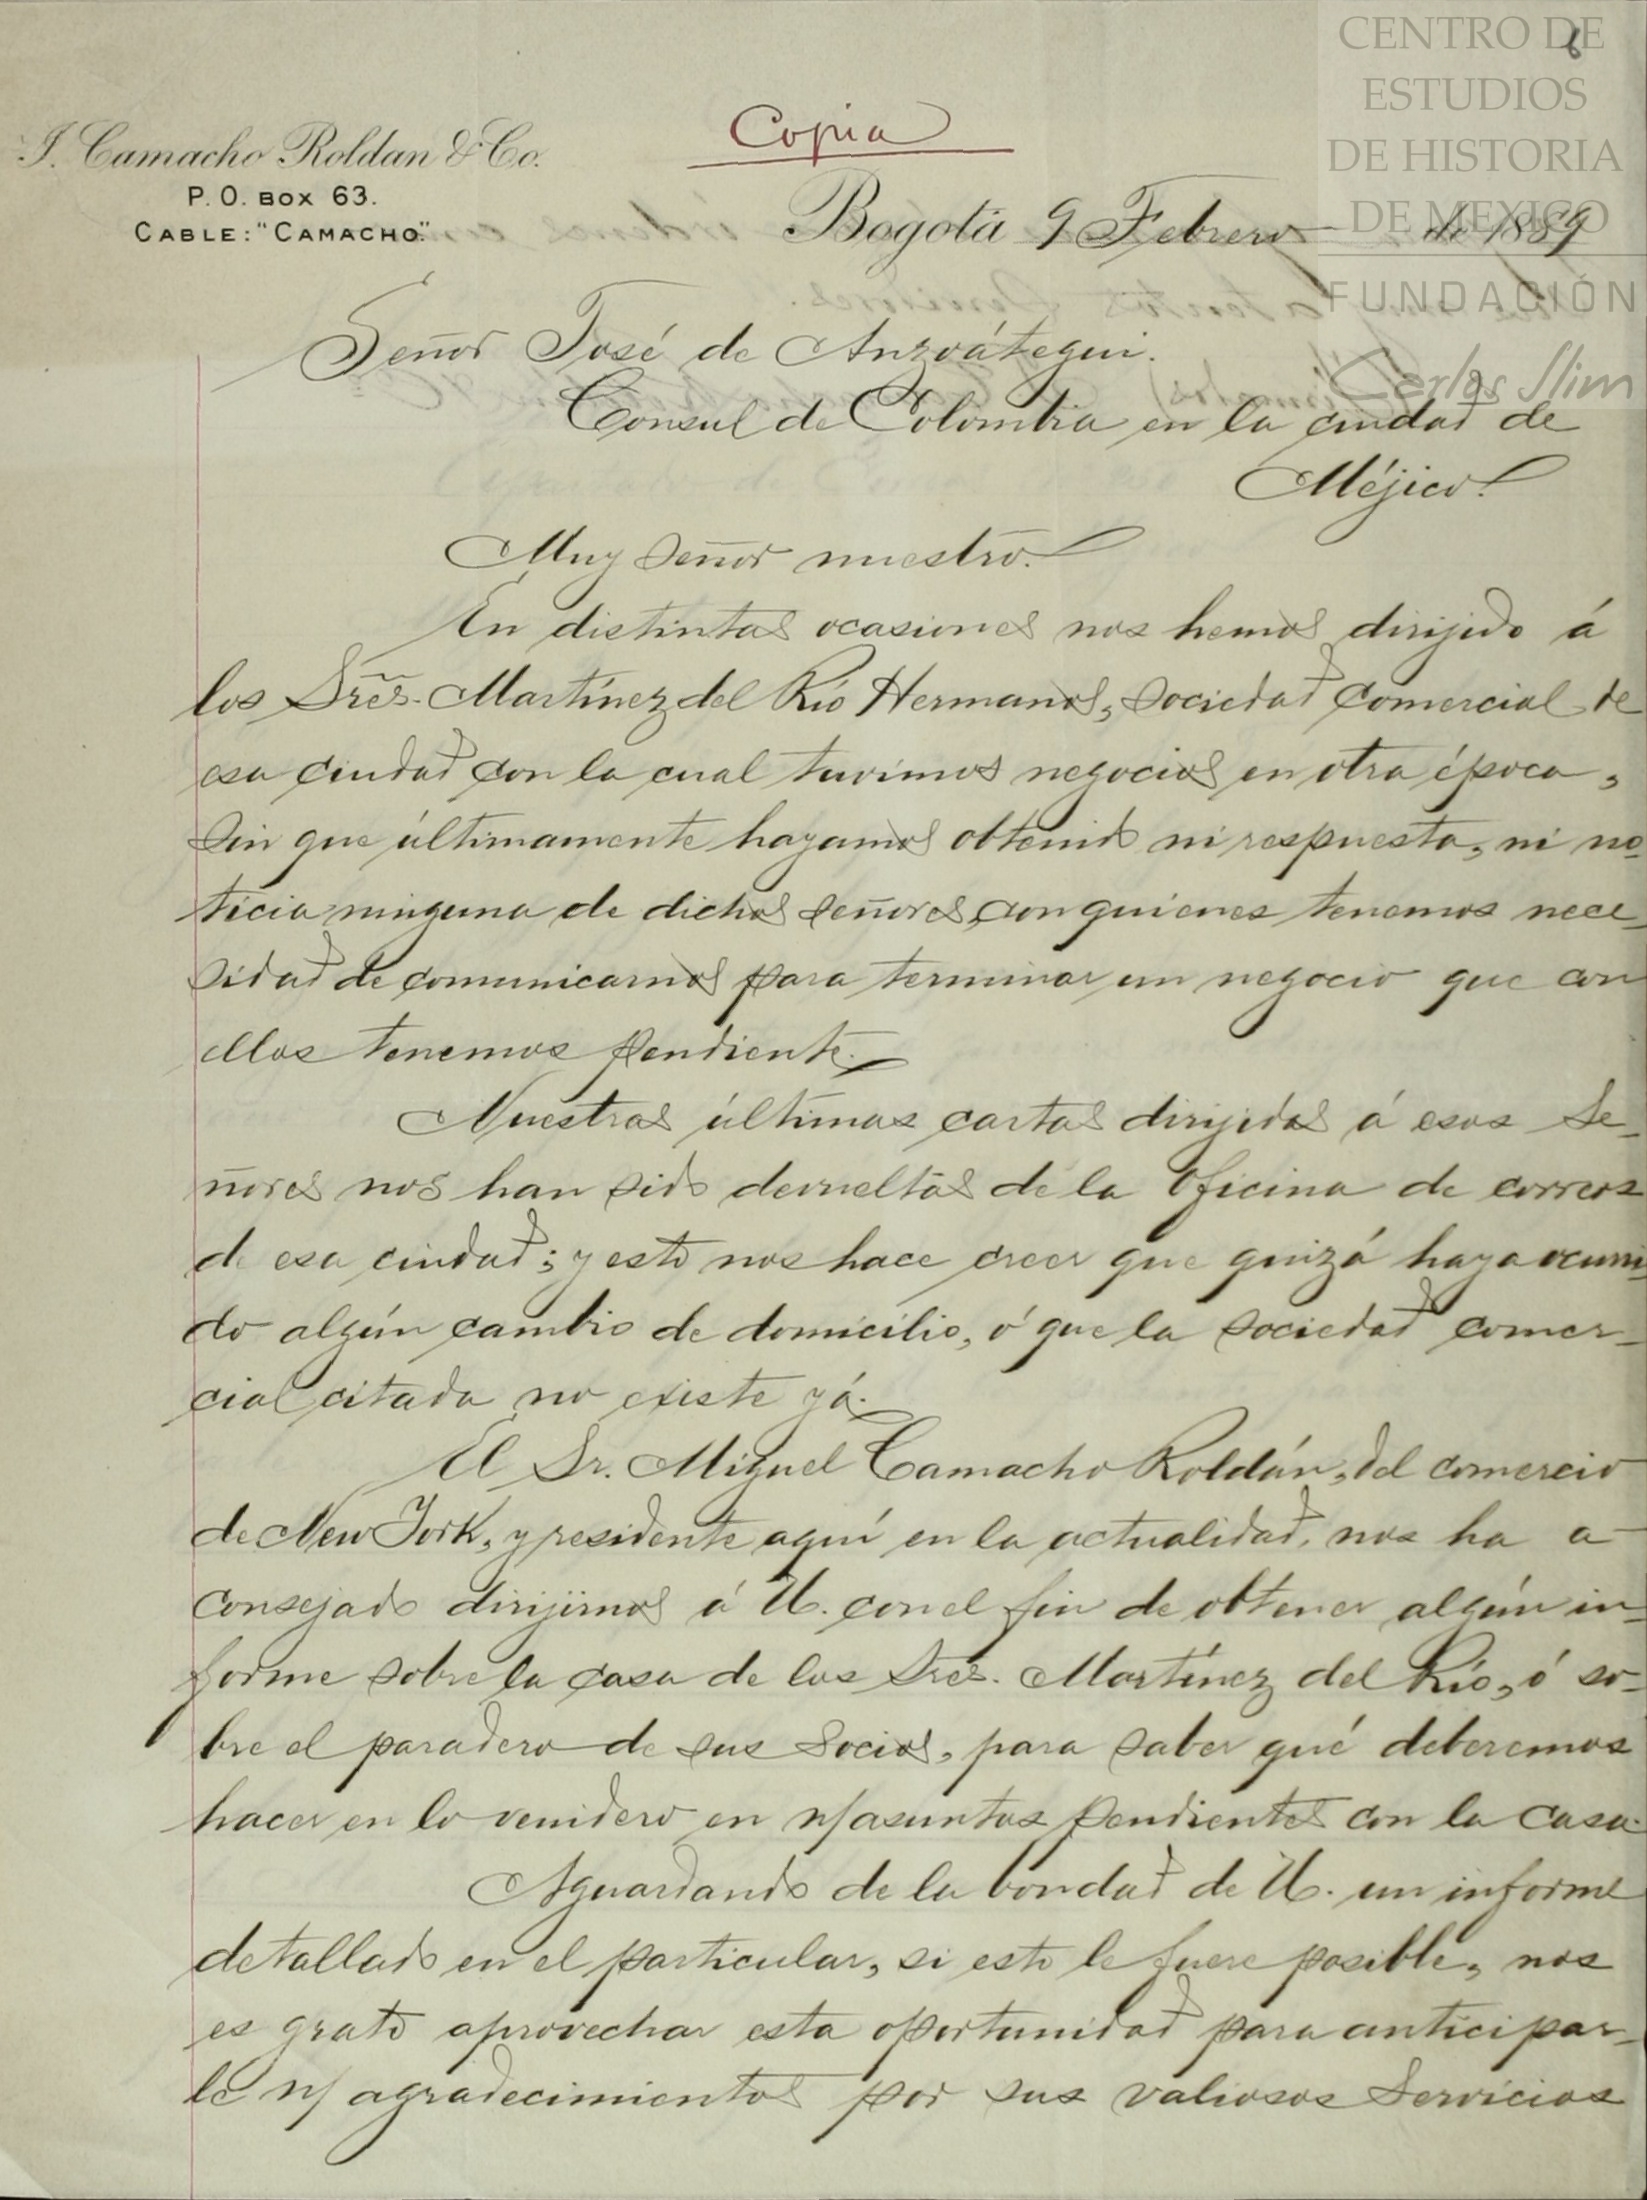 CENTRO DE
ESTUDIOS
DE HISTORIA
DE MEXICO
FUNDACIÓN
Carlos Slim
Copia
J. Camacho Roldan & Co.
P. O. BOX 63.
CABLE: "CAMACHO."
Bogotá 9 Febrero de 1889
Señor José de Anzoátegui.
Consul de Colombia en la ciudad de
Méjico.
Muy Señor nuestro.
En distintas ocasiones nos hemos dirijido á
los Sres. Martínez del Río Hermanos, Sociedad Comercial de
esa ciudad con la cual tuvimos negocios en otra época,
sin que últimamente hayamos obtenido ni respuesta, ni no-
ticia ninguna de dichos señores, con quienes tenemos nece-
sidad de comunicarnos para terminar un negocio que con
ellos tenemos pendiente.
Nuestras últimas cartas dirijidas á esos Se-
ñores nos han sido devueltas de la Oficina de correos
de esa ciudad; y esto nos hace creer que quizá haya ocurri
do algún cambio de domicilio, ó que la sociedad comer-
cial citada no existe yá.
El Sr. Miguel Camacho Roldán, del comercio
de New York, y residente aquí en la actualidad, nos ha a-
consejado dirijirnos á U. con el fin de obtener algún in-
forme sobre la casa de los Sres. Martínez del Río, ó so-
bre el paradero de sus Socios, para saber qué deberemos
hacer en lo venidero en n/ asuntos pendientes con la casa.
Aguardando de la bondad de U. un informe
detallado en el particular, si esto le fuere posible, nos
es grato aprovechar esta oportunidad para anticipar-
le n/ agradecimientos por sus valiosos Servicios